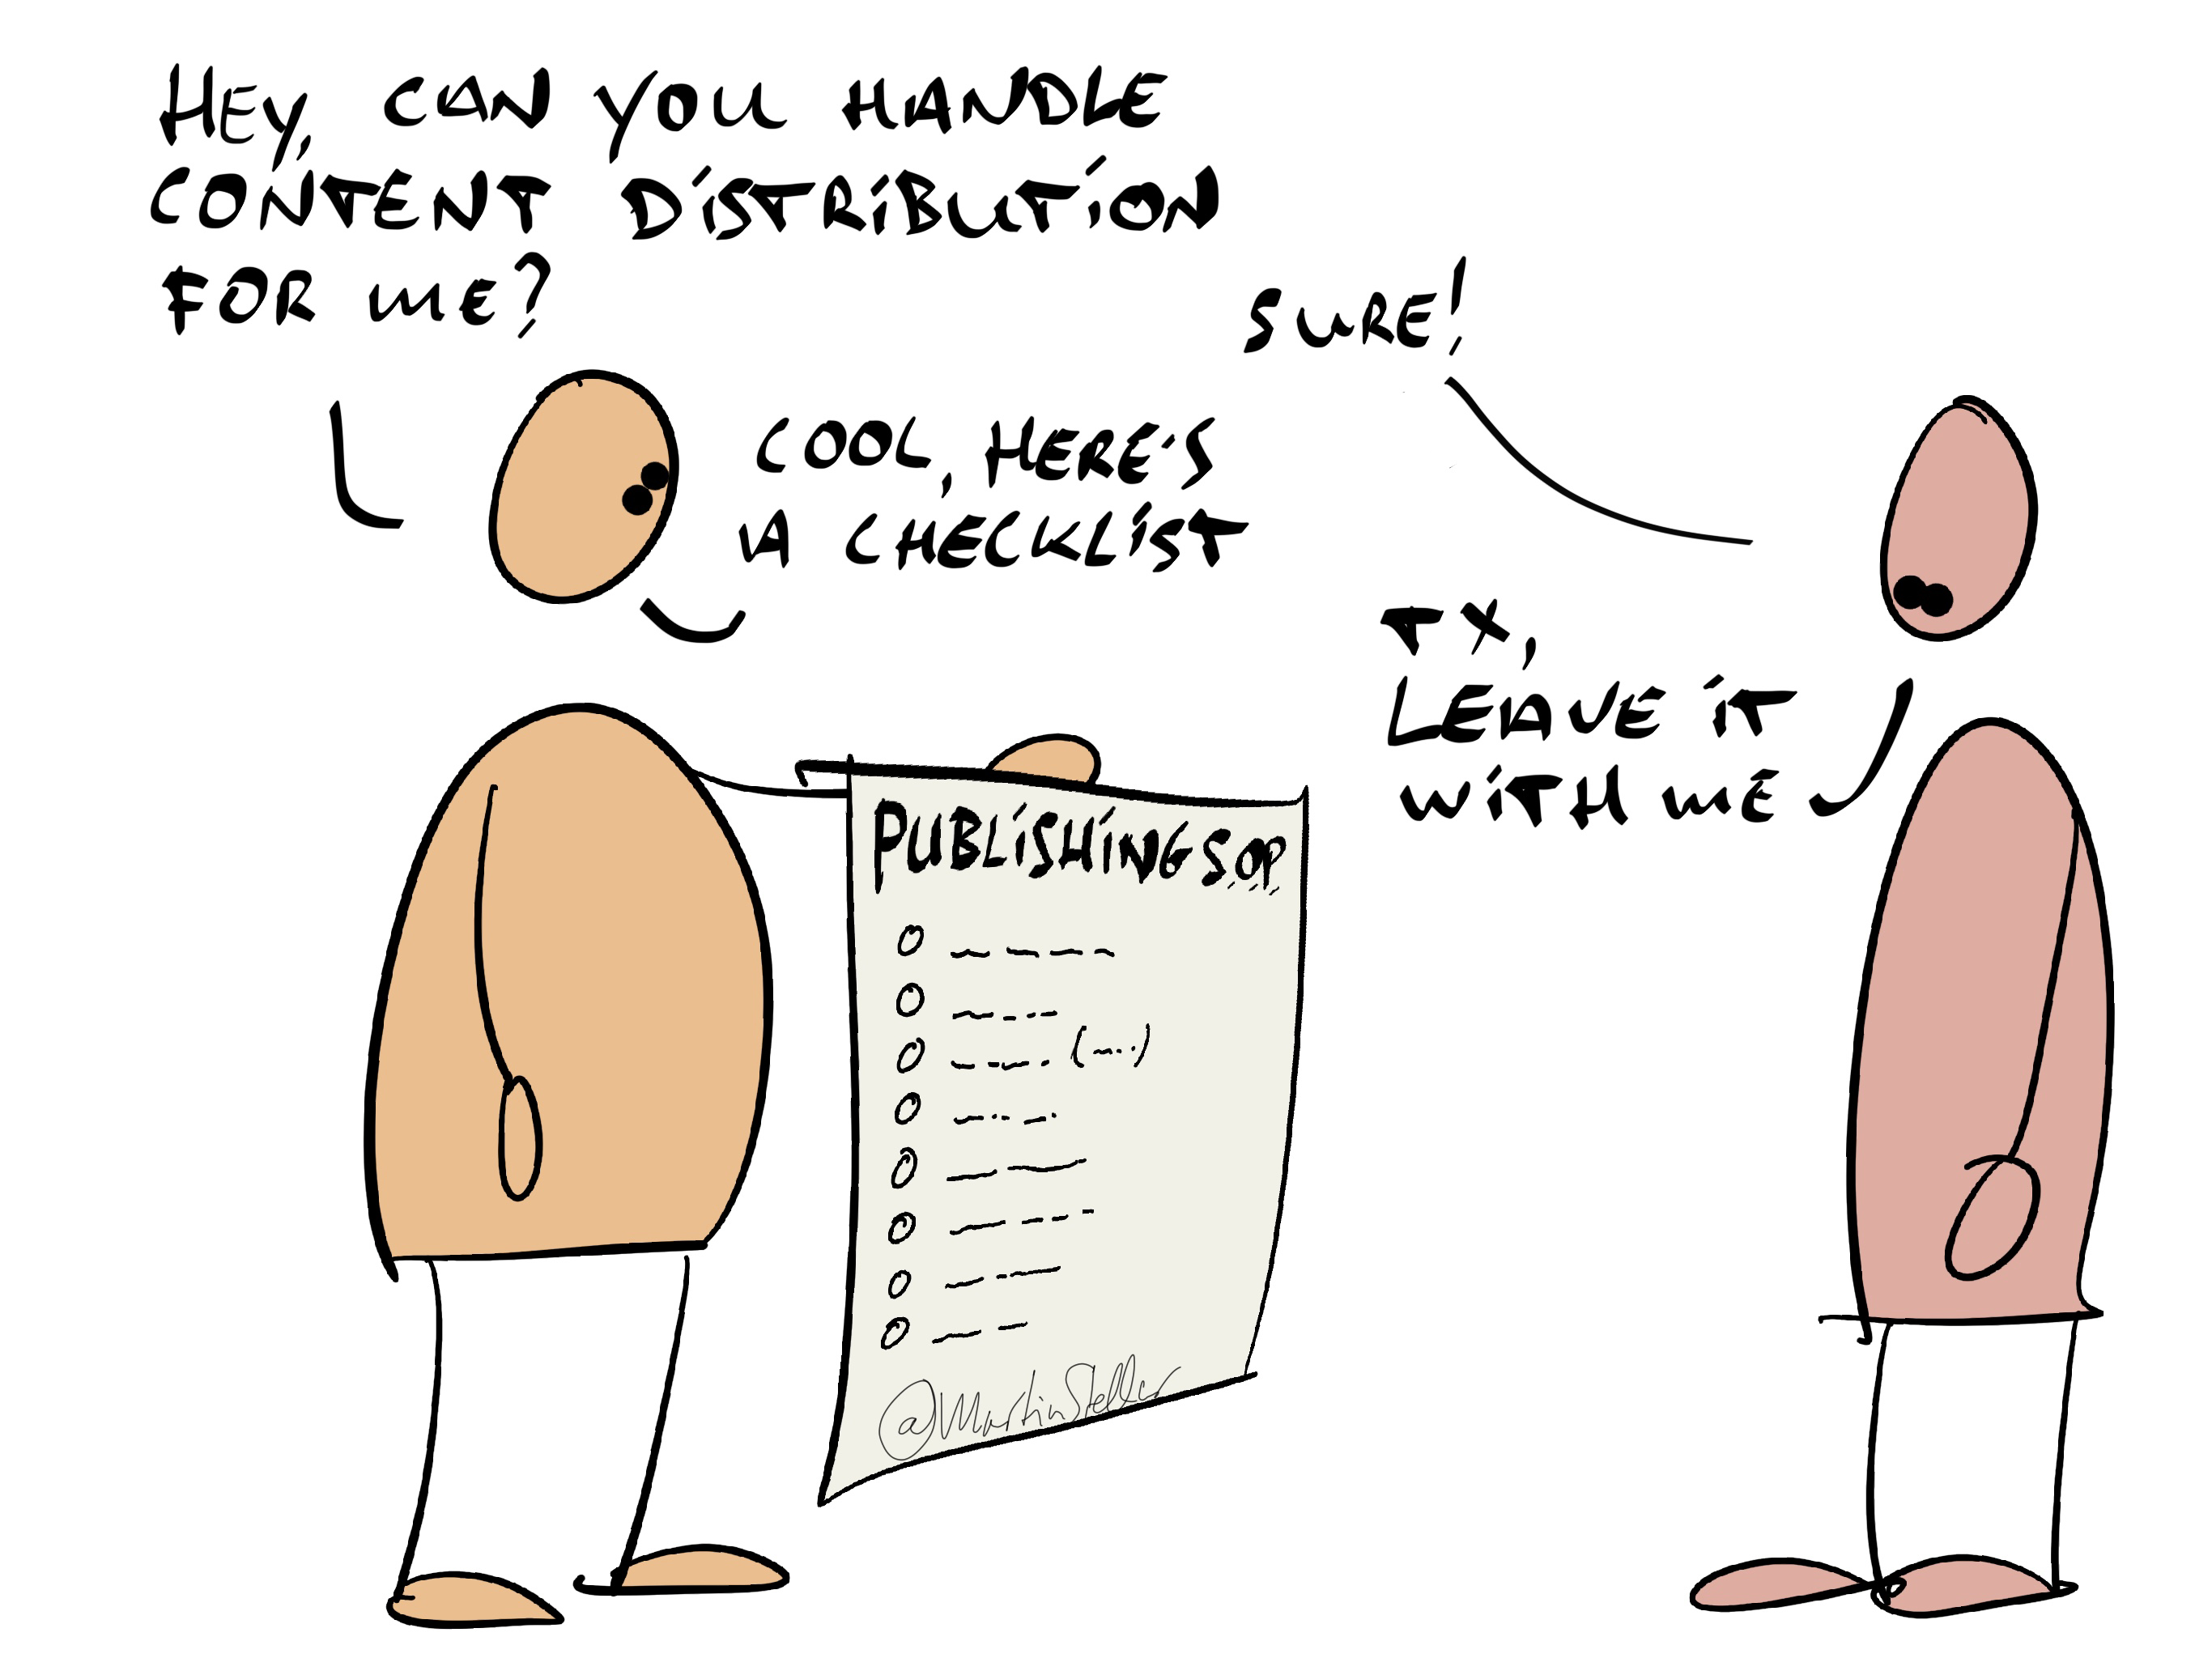 HEY, CAN YOU HANDLE
CONTENT DISTRIBUTION
FOR ME?
SURE!
COOL, HERE'S
A CHECKLIST
TX,
LEAVE IT
WITH ME
PUBLISHING SOP
(...)
@MartinStellar